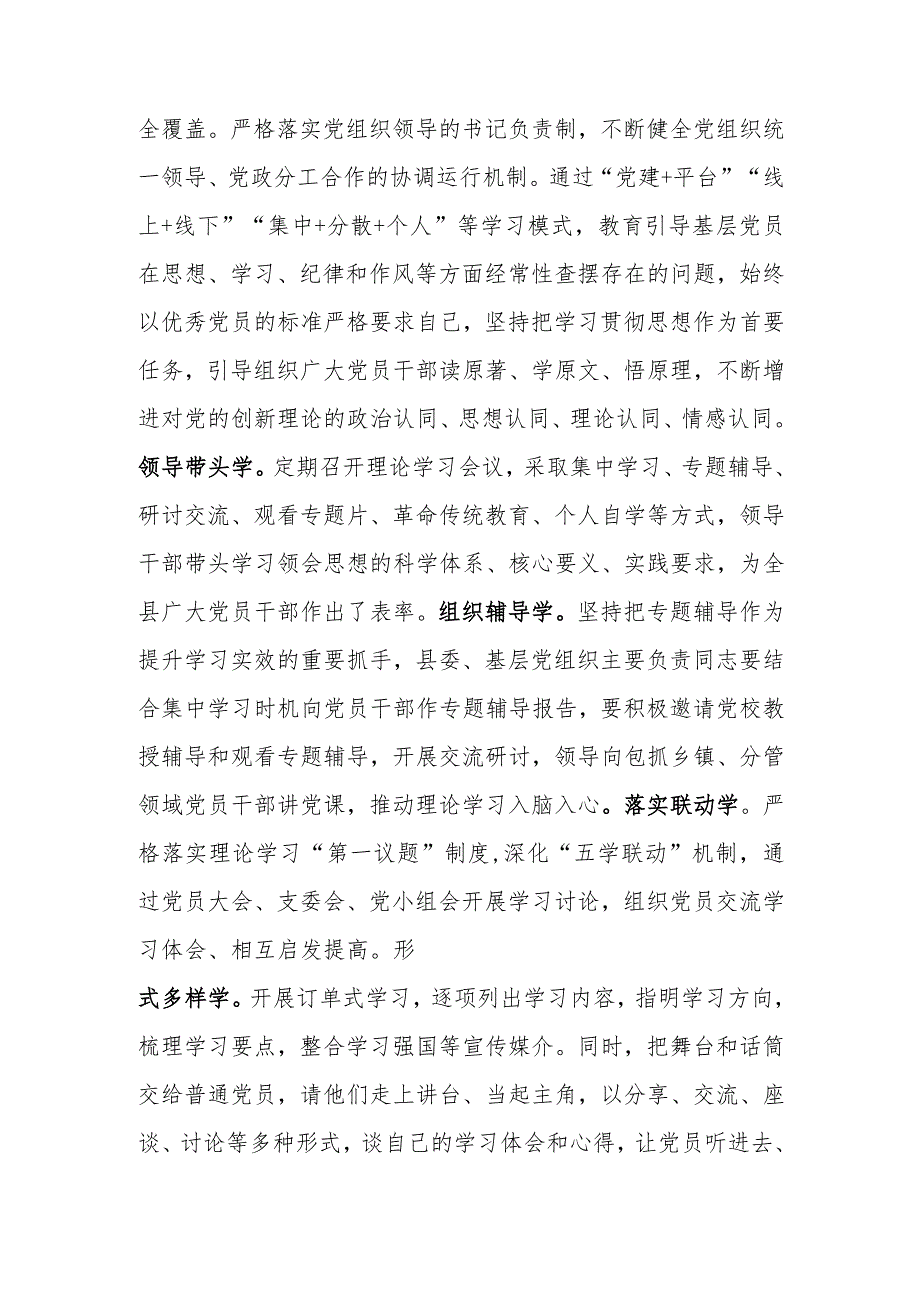 全覆盖。严格落实党组织领导的书记负责制，不断健全党组织统
一领导、党政分工合作的协调运行机制。通过“党建+平台”“线
上+线下”“集中+分散+个人”等学习模式，教育引导基层党员
在思想、学习、纪律和作风等方面经常性查摆存在的问题，始终
以优秀党员的标准严格要求自己，坚持把学习贯彻思想作为首要
任务，引导组织广大党员干部读原著、学原文、悟原理，不断增
进对党的创新理论的政治认同、思想认同、理论认同、情感认同。
领导带头学。定期召开理论学习会议，采取集中学习、专题辅导、
研讨交流、观看专题片、革命传统教育、个人自学等方式，领导
干部带头学习领会思想的科学体系、核心要义、实践要求，为全
县广大党员干部作出了表率。组织辅导学。坚持把专题辅导作为
提升学习实效的重要抓手，县委、基层党组织主要负责同志要结
合集中学习时机向党员干部作专题辅导报告，要积极邀请党校教
授辅导和观看专题辅导，开展交流研讨，领导向包抓乡镇、分管
领域党员干部讲党课，推动理论学习入脑入心。落实联动学。严
格落实理论学习“第一议题”制度,深化“五学联动”机制，通
过党员大会、支委会、党小组会开展学习讨论，组织党员交流学
习体会、相互启发提高。形
式多样学。开展订单式学习，逐项列出学习内容，指明学习方向，
梳理学习要点，整合学习强国等宣传媒介。同时，把舞台和话筒
交给普通党员，请他们走上讲台、当起主角，以分享、交流、座
谈、讨论等多种形式，谈自己的学习体会和心得，让党员听进去、